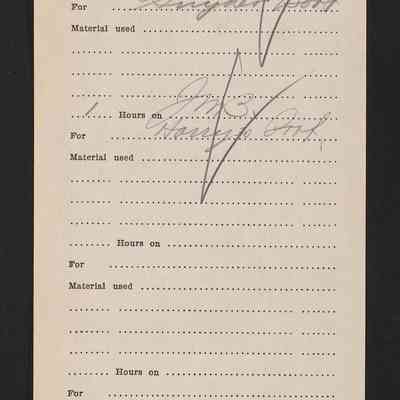 For Snyder
Material used
1 Hours on J M B.
For Harry's
Material used
Hours on
For
Material used
Hours on
For